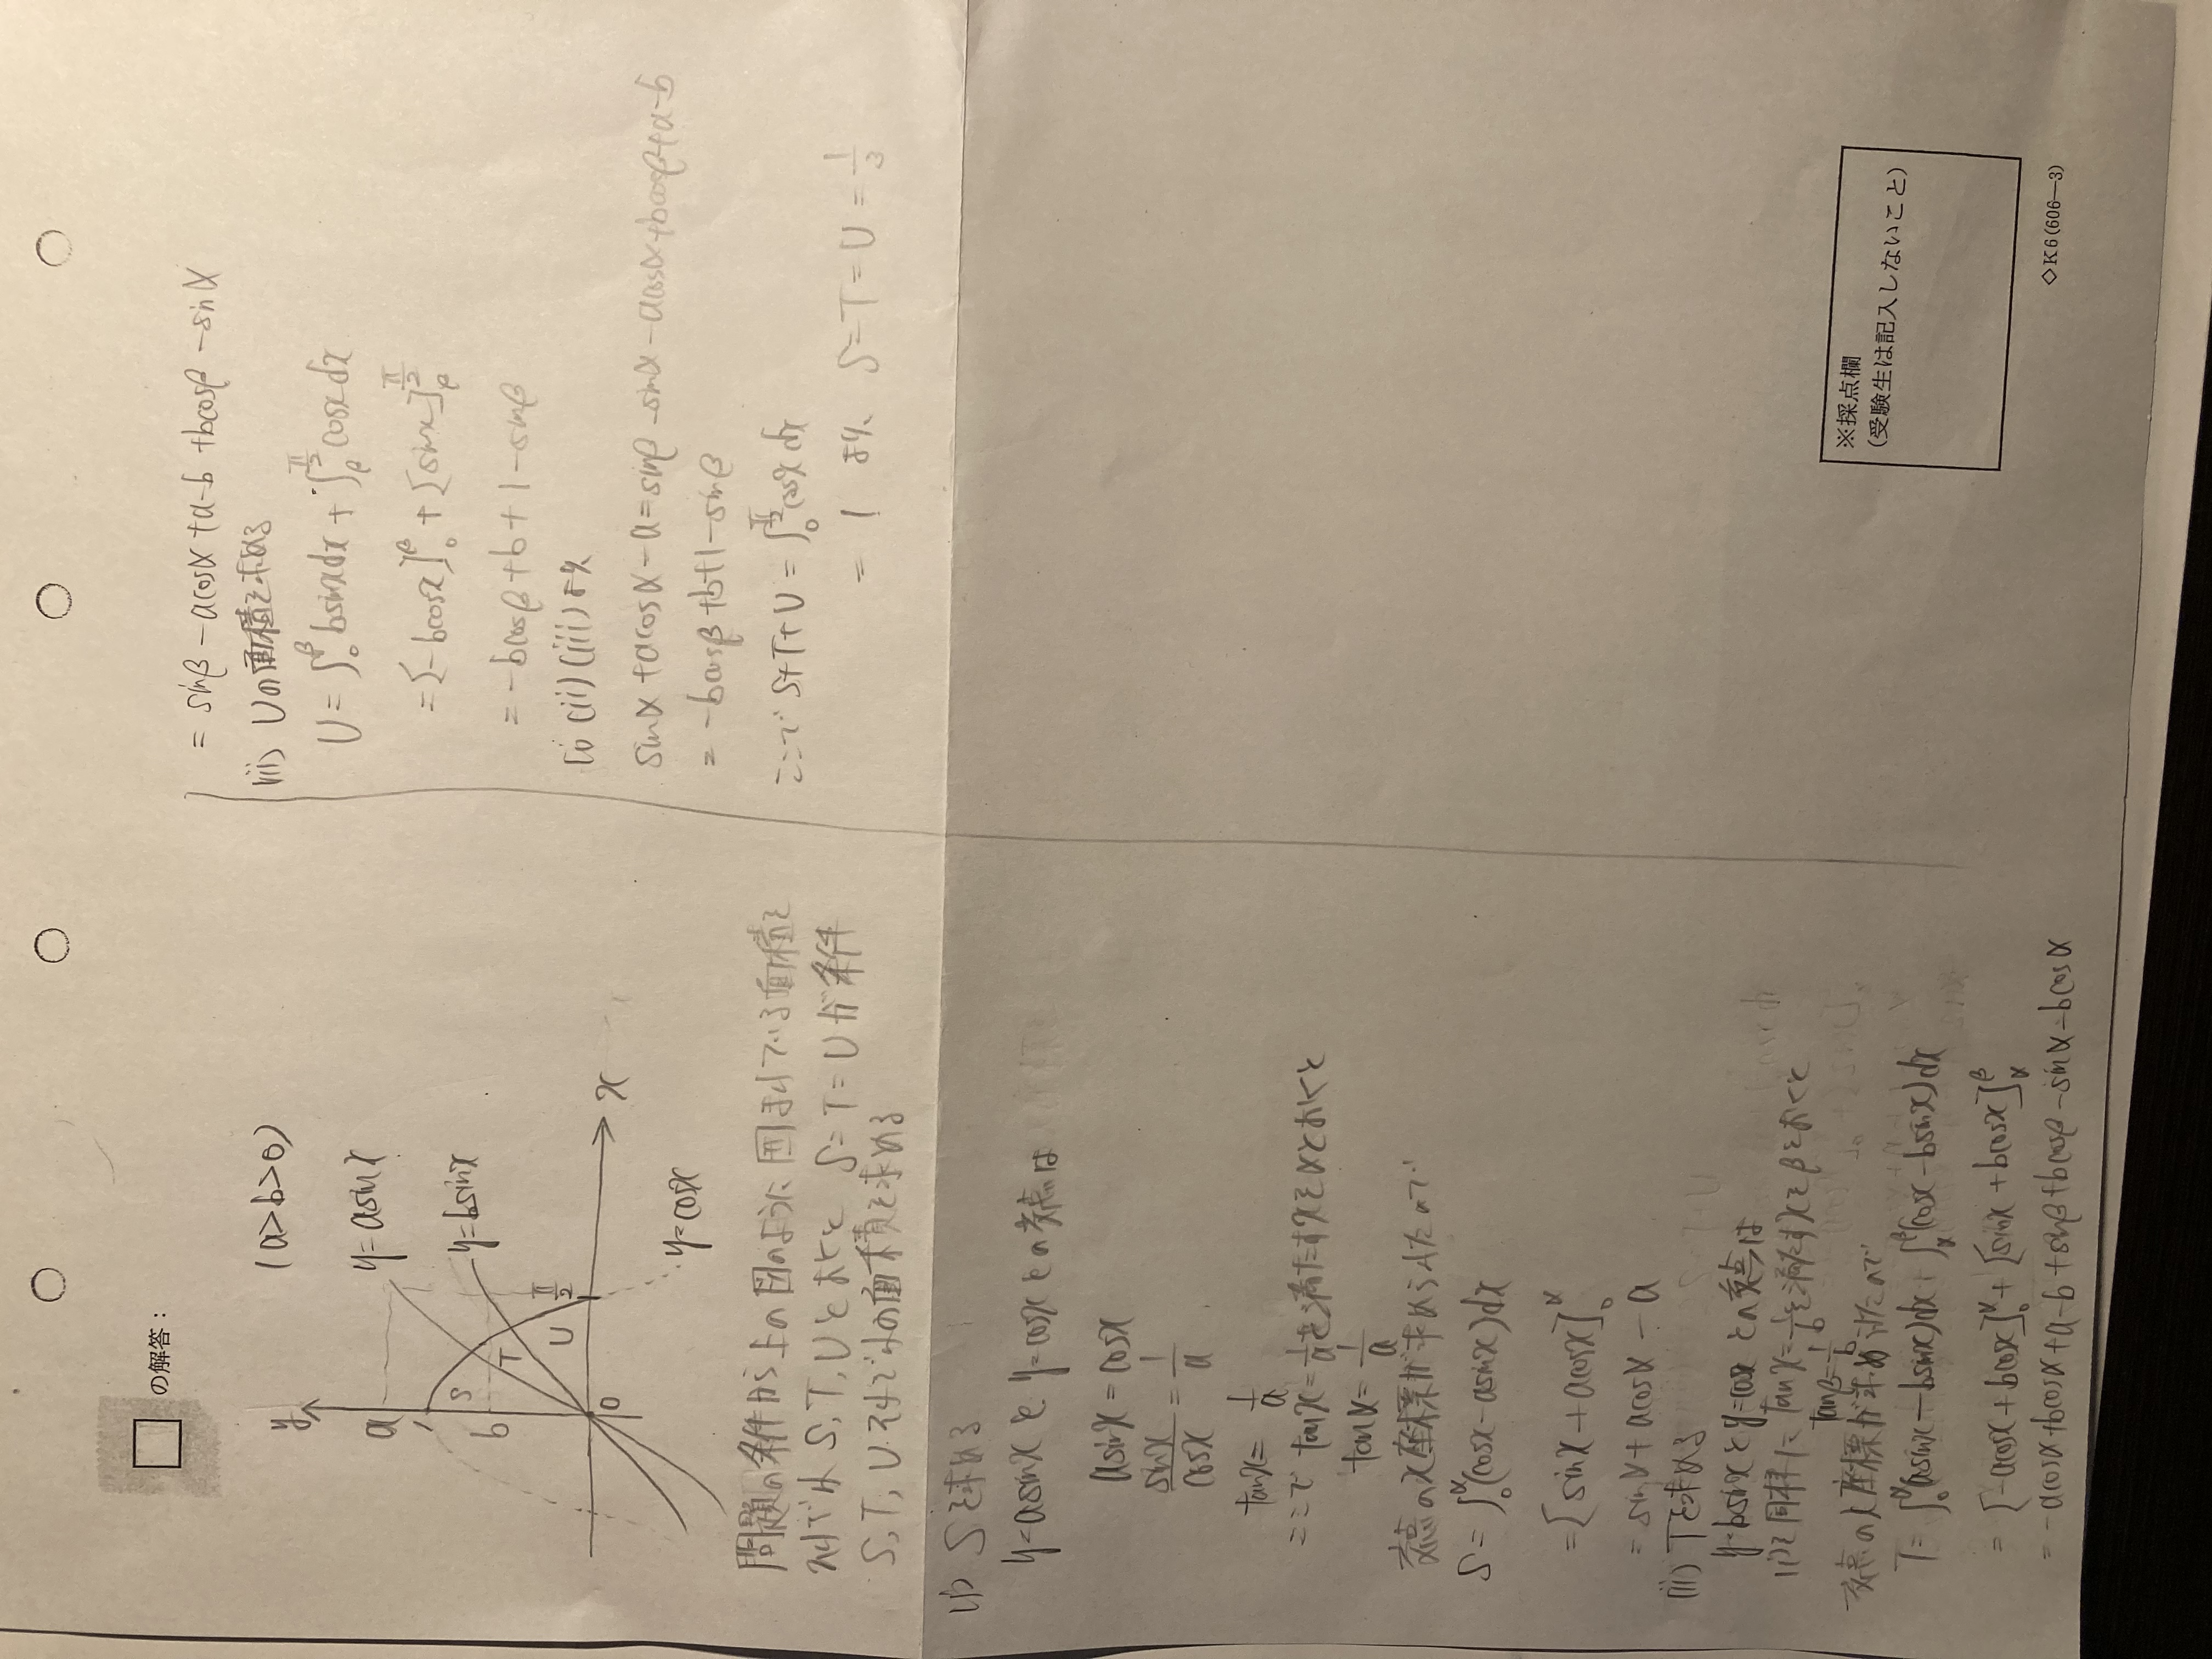 の解答：
(a>b>0)
y
a
y=asinx
1
S
T
b
y=bsinx
U
π/2
0
x
y=cosx
問題の条件から上の図のように囲まれている面積を
それぞれS,T,Uとおくと S=T=Uが条件
S,T,Uそれぞれの面積を求める
(i) Sを求める
y=asinxとy=cosxとの交点は
asinx=cosx
sinx/cosx=1/a
tanx=1/a
ここで tanx=1/aを満たすxをαとおくと
tanα=1/a
交点のx座標が求められたので
S=∫₀^α(cosx-asinx)dx
=[sinx+acosx]₀^α
=sinα+acosα-a
(ii) Tを求める
y=bsinxとy=cosxとの交点は
(i)と同様に tanx=1/bを満たすxをβとおくと
tanβ=1/b
交点のx座標が求められたので
T=∫₀^α(asinx-bsinx)dx+∫_α^β(cosx-bsinx)dx
=[-acosx+bcosx]₀^α+[sinx+bcosx]_α^β
=-acosα+bcosα+a-b+sinβ+bcosβ-sinα-bcosα
=sinβ-acosα+a-b+bcosβ-sinα
(iii) Uの面積を求める
U=∫₀^β bsinxdx+∫_β^{π/2}cosxdx
=[-bcosx]₀^β+[sinx]_β^{π/2}
=-bcosβ+b+1-sinβ
(i)(ii)(iii)より
sinα+acosα-a=sinβ-sinα-acosα+bcosβ+a-b
=-bcosβ+b+1-sinβ
ここで S+T+U=∫₀^{π/2}cosxdx
=1 より S=T=U=1/3
※採点欄
(受験生は記入しないこと)
◇K6(606—3)